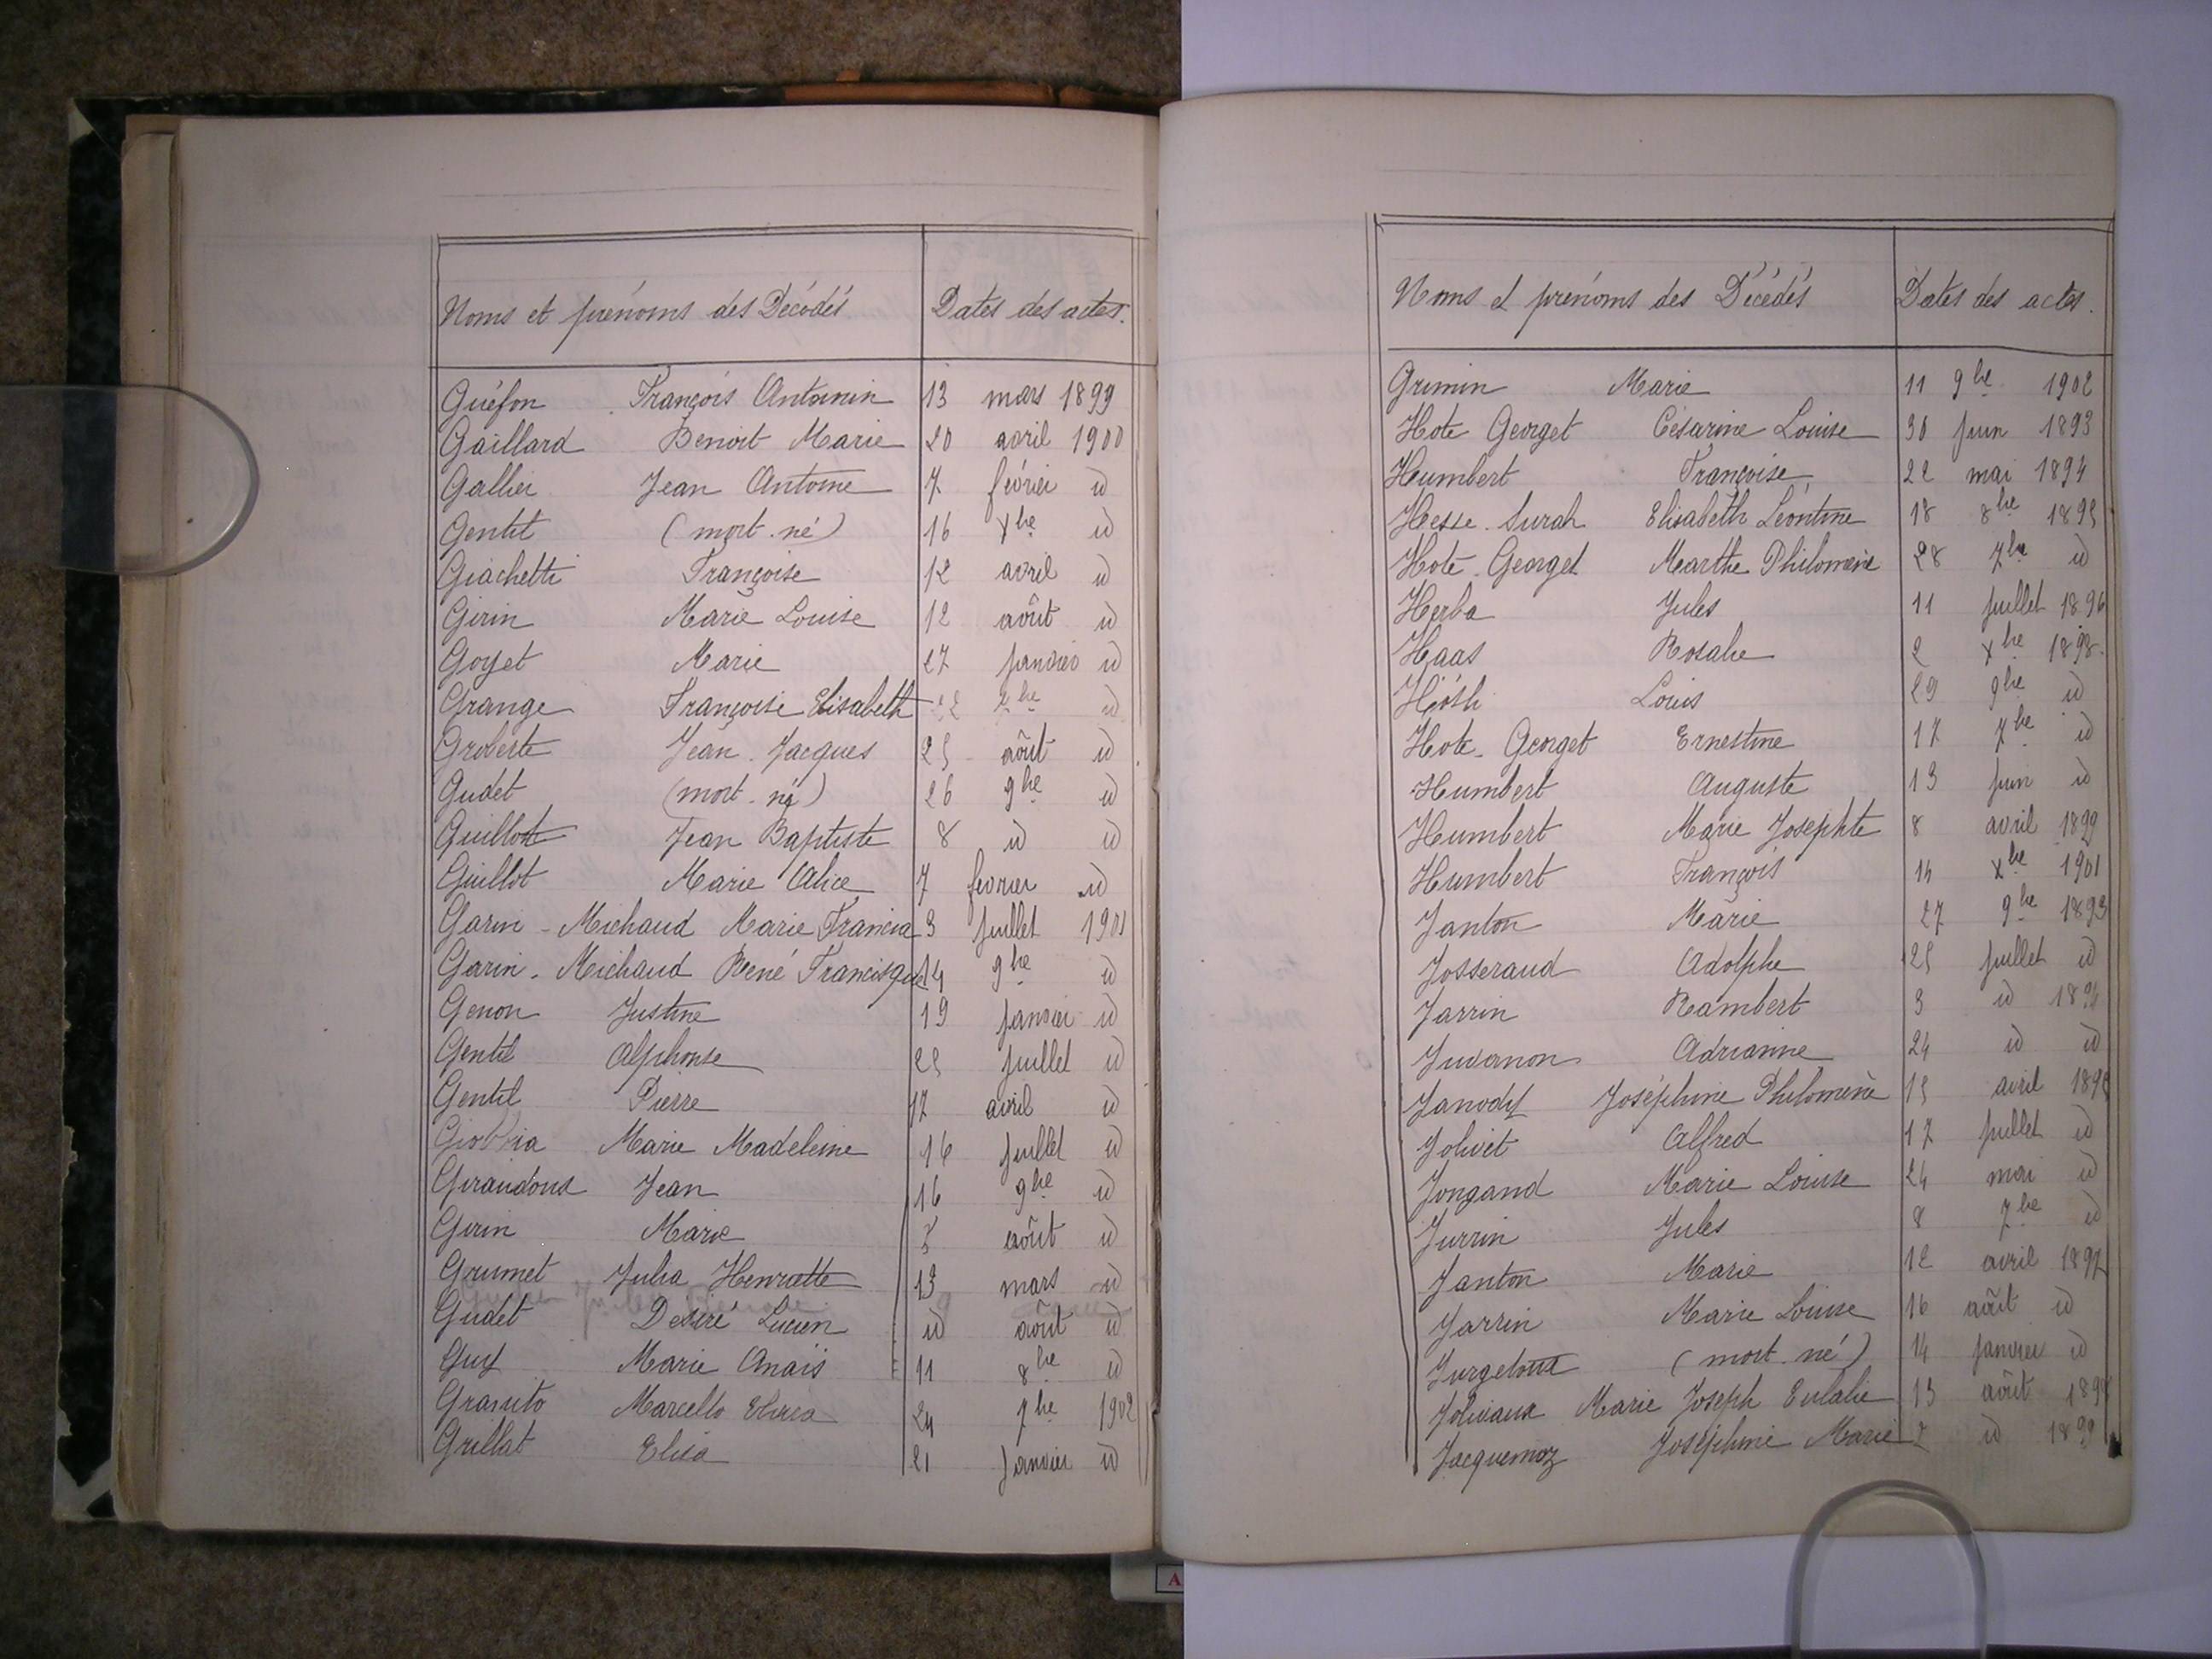 Noms et prénoms des Décédés Dates des actes.
Guéfon François Antonin 13 mars 1899
Gaillard Benoit Marie 20 avril 1900
Gallier Jean Antoine 7 février id
Gentil (mort-né) 16 Xbre id
Giachetti Françoise 12 avril id
Girin Marie Louise 12 août id
Goyet Marie 27 janvier id
Grange Françoise Elisabeth id
Groberte Jean-Jacques 25 août id
Gudet (mort-né) 26 9bre id
Guillot Jean Baptiste 8 id id
Guillot Marie Alice 7 février id
Garin-Michaud Marie Francia 3 juillet 1901
Garin-Michaud René Francisque 14 9bre id
Genon Justine 19 janvier id
Gentil Alphonse 25 juillet id
Gentil Pierre 17 avril id
Marie Madeleine 16 juillet id
Giraudons Jean 16 9bre id
Girin Marie août id
Grumet Julia Henriette 13 mars id
Gudet Desiré Lucien id août id
Guy Marie Anaïs 11 8bre id
Marcello 24 7bre 1902
Grillat Elisa 21 Janvier id
Noms et prénoms des Décédés Dates des actes.
Grimin Marie 11 9bre 1902
Hote Georget Césarine Louise 30 juin 1893
Humbert Françoise 22 mai 1894
Hesse-Surah Elisabeth Léontine 18 8bre 1895
Hote-Georget Marthe Philomène 28 7bre id
Herba Jules 11 juillet 1896
Haas Rosalie 2 Xbre 1898
Hösli Louis 29 9bre id
Hote-Georget Ernestine 17 7bre id
Humbert Auguste 13 juin id
Humbert Marie Josephte 8 avril 1899
Humbert François 14 Xbre 1901
Janton Marie 27 9bre 1893
Josseraud Adolphe 25 juillet id
Jarrin Rambert 3 id 1894
Juvanon Adrianne 24 id id
Janody Joséphine Philomène 15 avril
Jolivet Alfred 17 juillet id
Jongand Marie Louise 24 mai id
Jurrin Jules 8 7bre id
Janton Marie 12 avril 1897
Jarrin Marie Louise 16 août id
(mort-né) 14 janvier id
Jolivaux Marie Joseph Eulalie 13 août
Jacquemoz Joséphine Marie id 1899